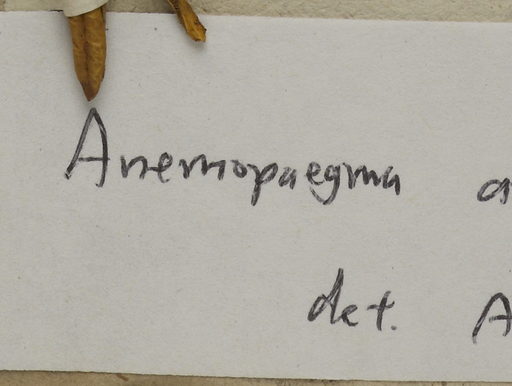 Anemopaegma a
det. A